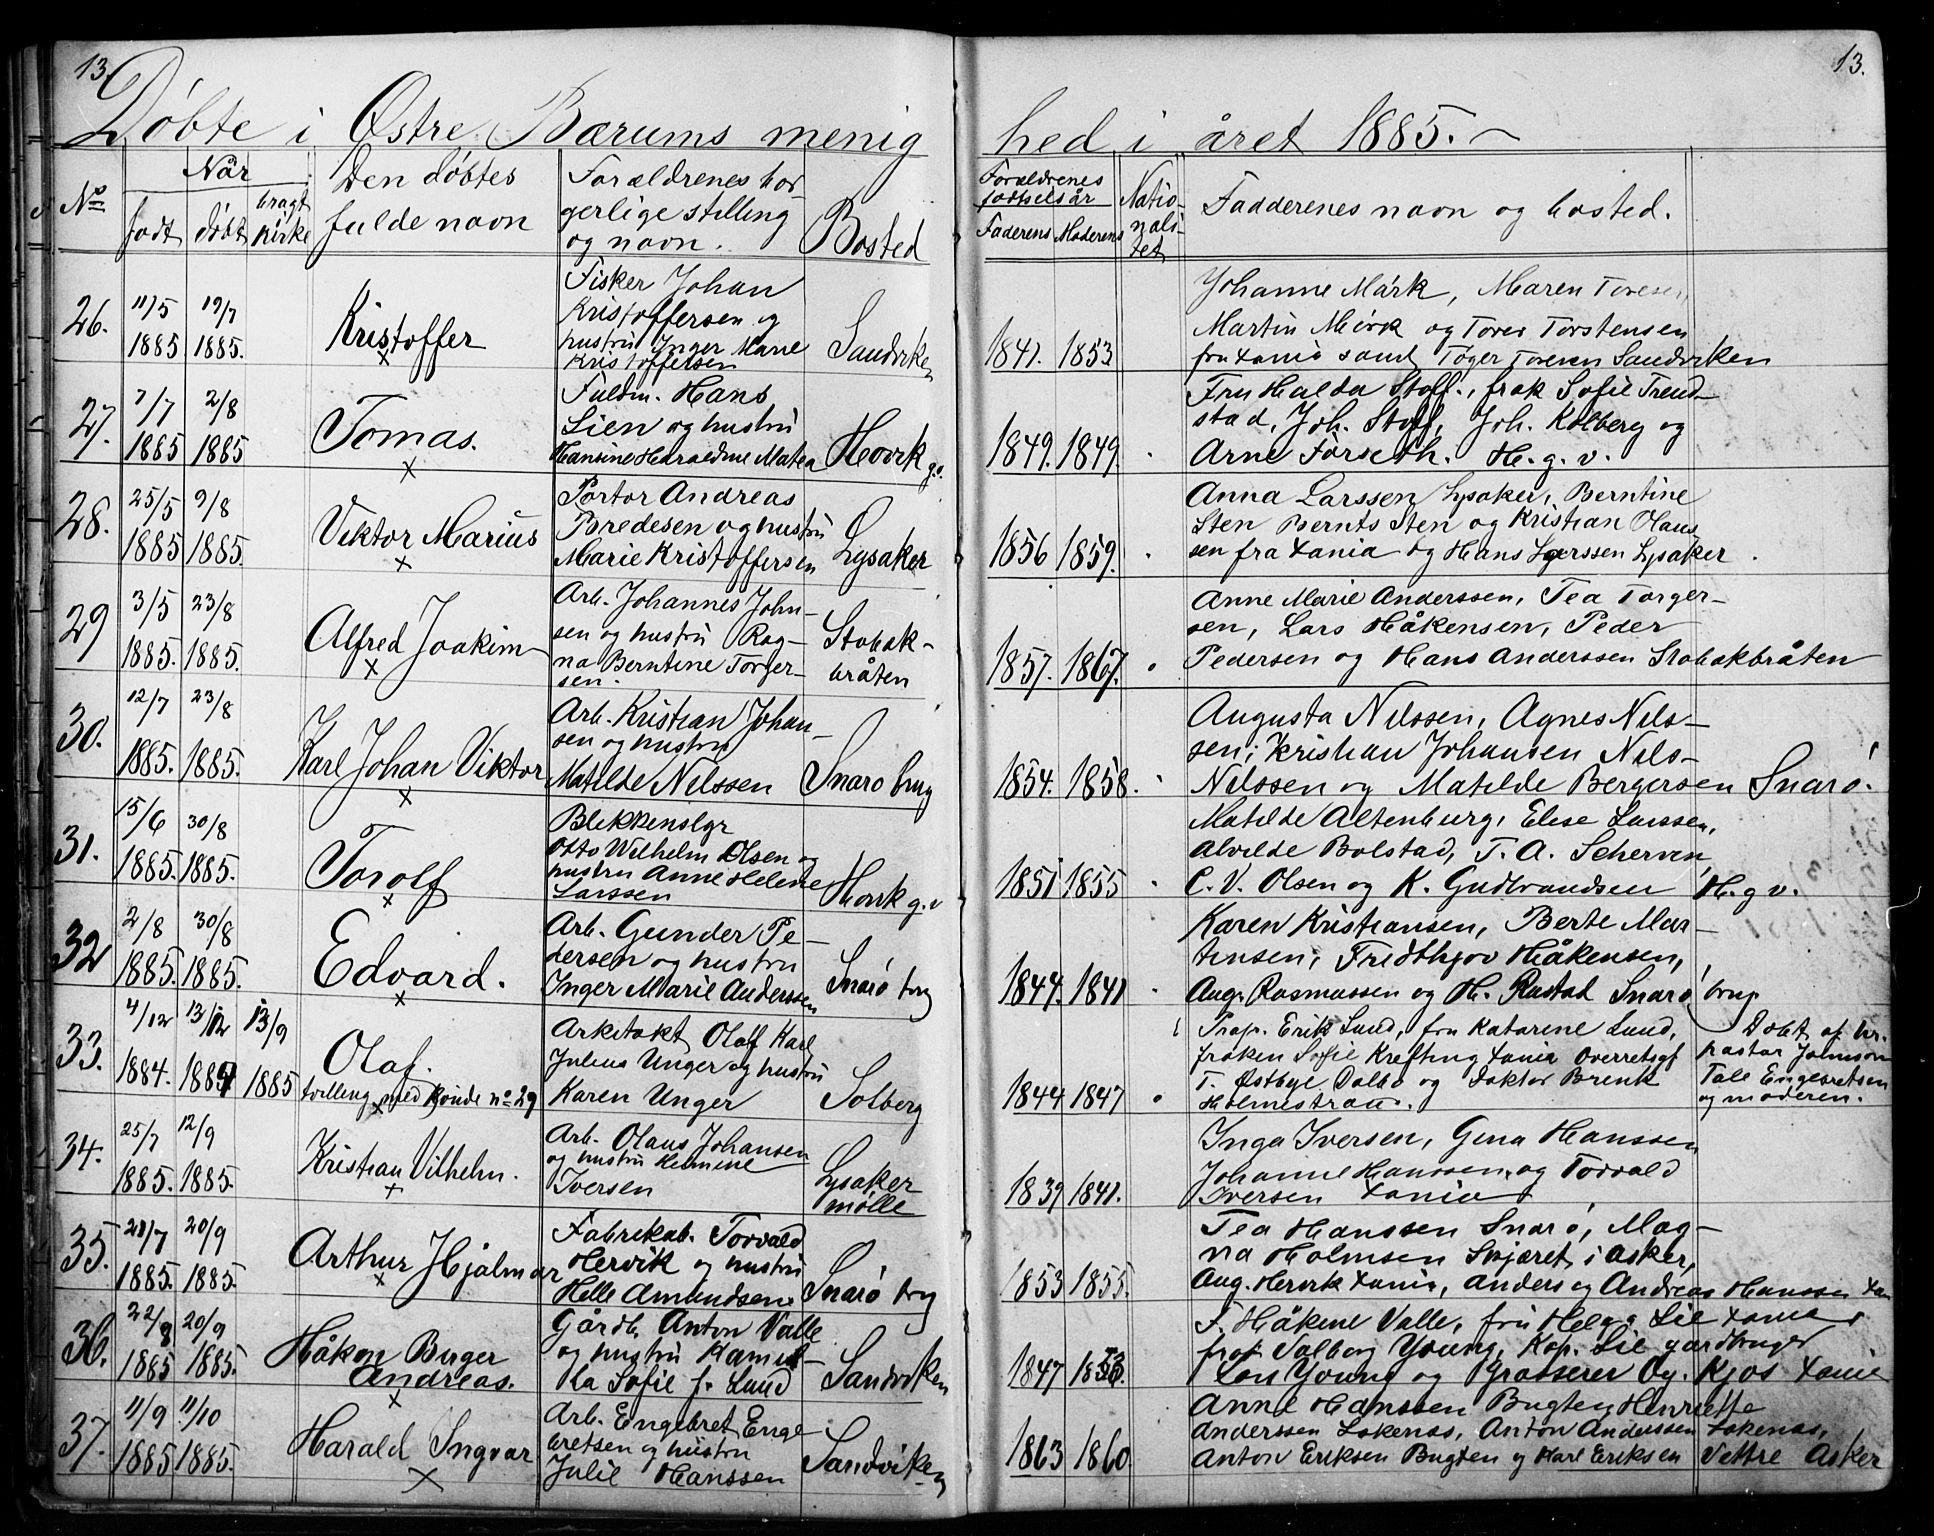 13.
13.
Döbte i Østre Bærums menig
hed i året 1885.
No
Når
født
döbt
bragt kirke
Den döbtes
fulde navn
Forældrenes bor
gerlige stilling
og navn.
Bosted
Forældrenes
födselsår
Faderens
Moderens
Natio-
nali-
tet
Fadderenes navn og bosted.
26.
11/5
1885
19/7
1885.
Kristoffer
Fisker Johan
Kristoffersen og
hustru Inger Marie
Kristoffersen
Sandviken
1841. 1853
Johanne Mörk, Maren Toresen,
Martin Mörk og Tores Torstensen
fra Xania samt Toger Toresen Sandviken
27.
7/7
1885
2/8
1885
Tomas.
Fuldm. Hans
Lien og hustru
Hansine Haraldine Matea
Hövik g.v.
1849. 1849.
Fru Halda Stoff., frøk Sofie Trend-
stad, Joh. Stoff, Joh. Kolberg og
Arne Forseth. H. g. v.
28.
25/5
1885
9/8
1885.
Viktor Marius
Portør Andreas
Bredesen og hustru
Marie Kristoffersen
Lysaker
1856 1859.
Anna Larssen Lysaker, Berntine
Sten Bernts Sten og Kristian Olaus
sen fra Xania og Hans Larssen Lysaker.
29
3/5
1885.
23/8
1885.
Alfred Joakim
Arb. Johannes John-
sen og hustru Rag-
na Berntine Torger-
sen.
Stabæk-
bråten
1857. 1867.
Anne Marie Anderssen, Tea Torger-
sen, Lars Håkensen, Peder
Pedersen og Hans Anderssen Stabækbråten
30.
12/7
1885.
23/8
1885.
Karl Johan Viktor
Arb. Kristian Johan-
sen og hustru
Matilde Nilssen
Snarö brug
1854. 1858.
Augusta Nilssen, Agnes Nils-
sen, Kristian Johansen Nils-
Nilssen og Matilde Bergersen Snarö.
31.
15/6
1885.
30/8
1885.
Torolf
Blikkenslgr
Otto Wilhelm Olsen og
hustru Anne Helene
Larssen
Hövik g.v
1851 1855
Matilde Altenburg, Elise Larssen,
Alvilde Bolstad, T. A. Scherven,
C. V. Olsen og K. Gudbrandsen H. g v.
32
2/8
1885.
30/8
1885.
Edvard.
Arb. Gunder Pe-
dersen og hustru
Inger Marie Anderssen
Snarö brg
1844. 1841
Karen Kristiansen, Berte Mar-
tinsen, Fredthjov Håkensen,
Aug. Rasmussen og H. Rustad Snarö brug
33.
4/12
1884.
13/12
1884
13/9
1885
Olaf.
tvilling med kvinde no 29
Arkitækt Olaf Karl
Julius Unger og hustru
Karen Unger
Solberg
1844 1847
Prop. Erik Lund, fru Katarine Lund,
fröken Sofie Krefting Xania Overretssgf
T. Østbye Dalbo og Doktor Brenk
Holmestrand.
Döbt af hr.
pastor Johnson
Tale Engebretsen
og moderen.
34.
25/7
1885.
12/9
1885.
Kristian Vilhelm.
Arb. Olaus Johansen
og hustru Hermine
Iversen
Lysaker
mølle
1839 1841.
Inga Iversen, Gina Hanssen
Johanne Hanssen og Torvald
Iversen Xania
35.
21/7
1885.
20/9
1885.
Arthur Hjalmar
Fabrikab. Torvald
Hervik og hustru
Helle Amundsen
Snarö brg
1853 1855.
Tea Hanssen Snarö, Mag-
na Holmsen Skjæret i Asker,
Aug. Hervik Xania, Anders og Andreas Hanssen Xan
36.
22/8
1885
20/9
1885.
Håkon Birger
Andreas.
Gårdb. Anton Valle
og hustru Kamil-
la Sofie f. Lund
Sandviken
1847
F. Håkene Valle, fru Helga Lie Xania,
frøk Valborg Young, Kap. Lie gardbruger
Lars Young og Grosserer Og. Kjos Xania
37.
11/9
1885
11/10
1885.
Harald Ingvar
Arb. Engebret Enge
bretsen og hustru
Julie Hanssen
Sandviken
1863 1860
Anne Hanssen Bugten Henriette
Anderssen Løkenæs, Anton Anderssen Løkenæs,
Anton Eriksen Bugten og Karl Eriksen Vettre Asker